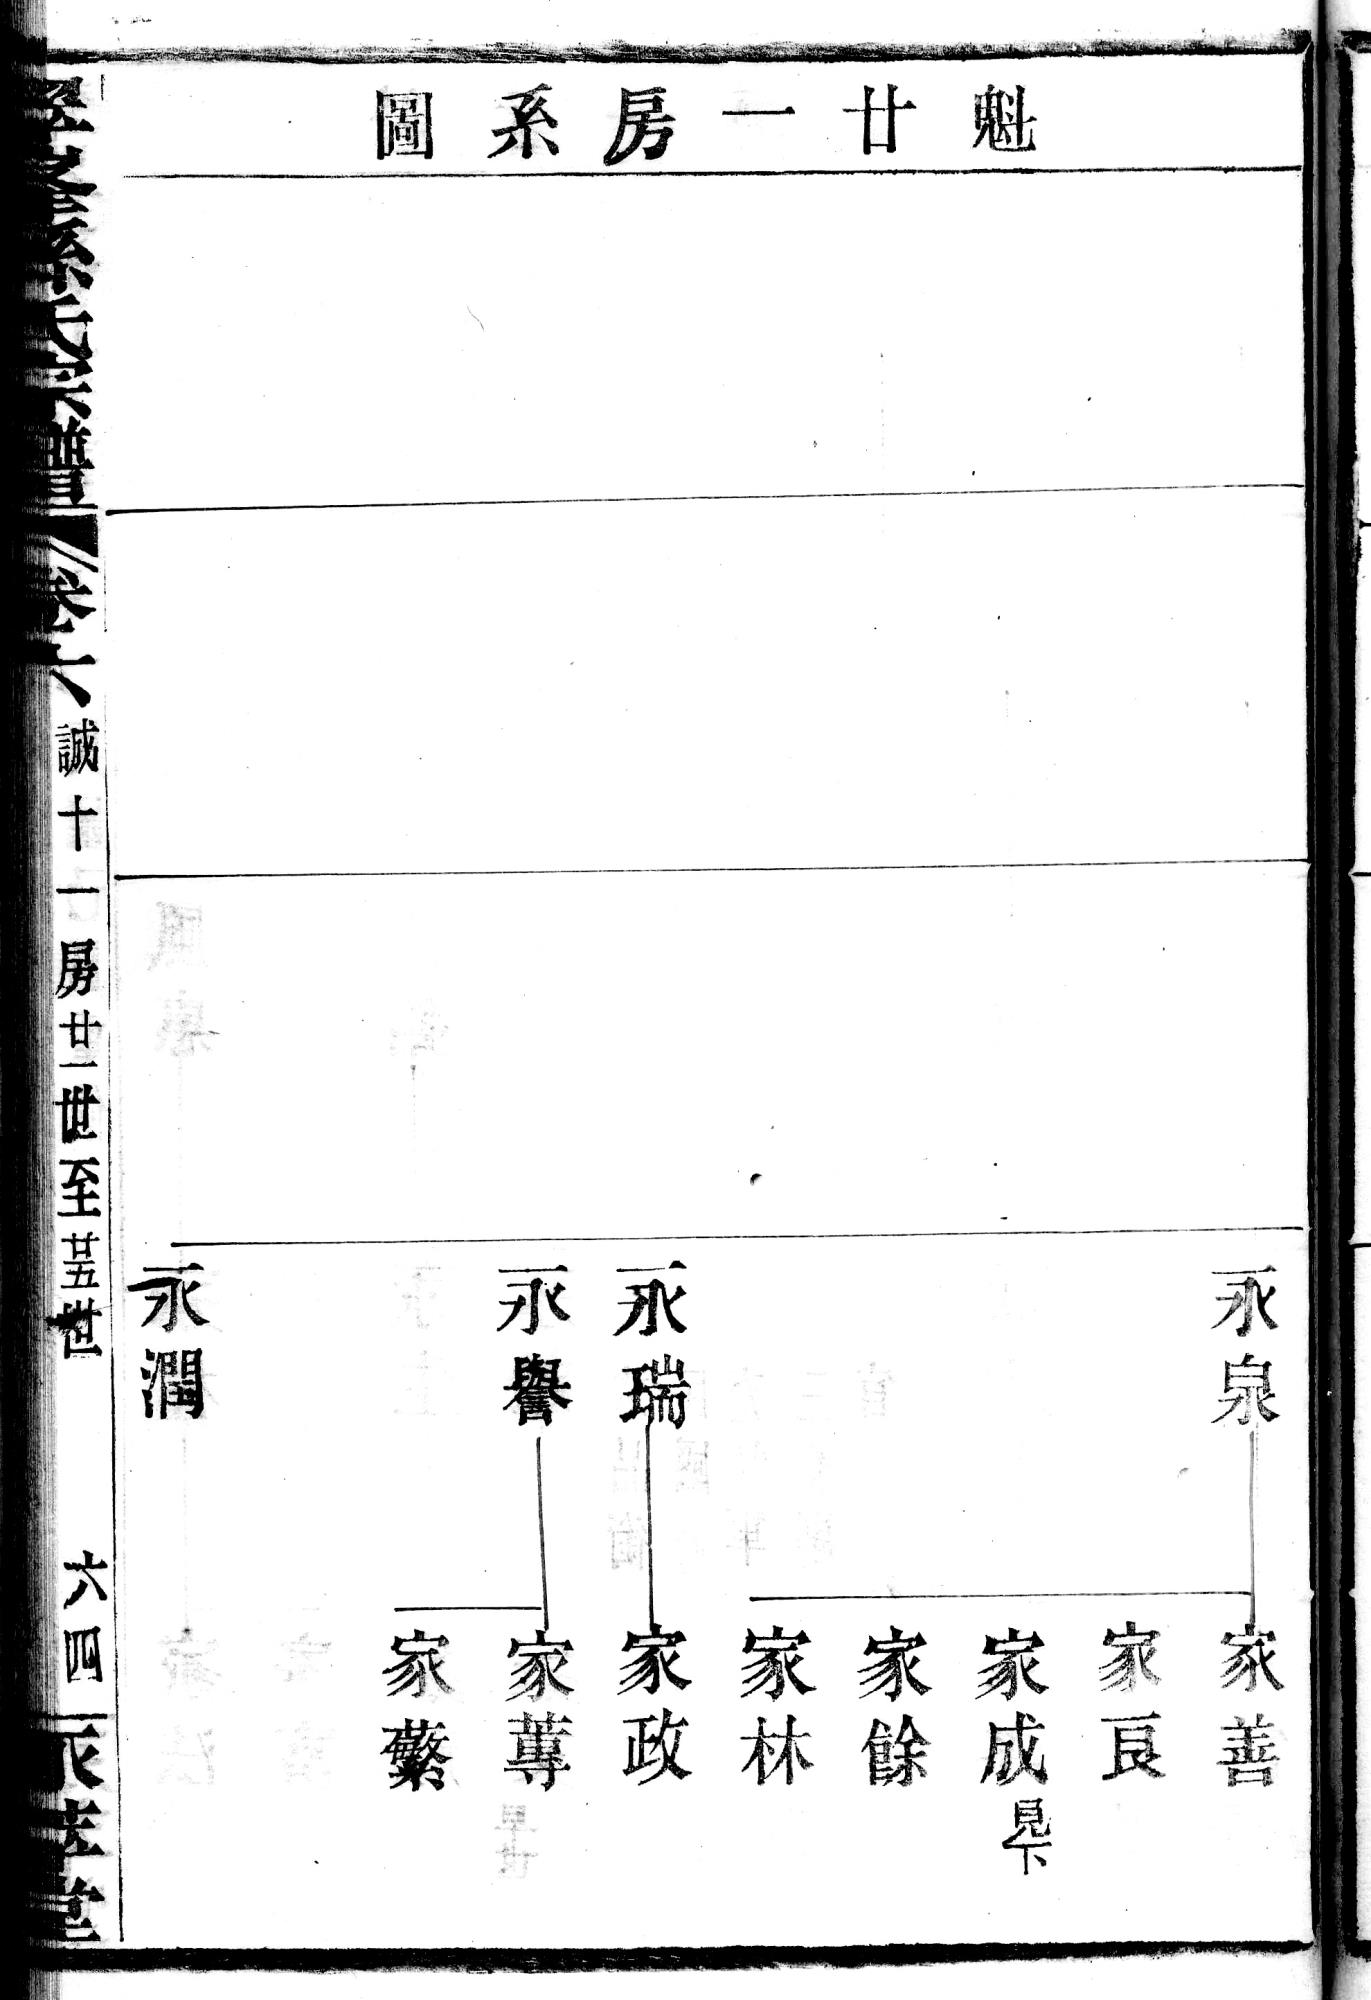 魁廿一房系圖
永泉
永瑞
永譽
永潤
家善
家良
家成
見下
家餘
家林
家政
家蓴
家蘩
孫氏宗譜
卷六
誠十一房廿一世至廿五世
六四